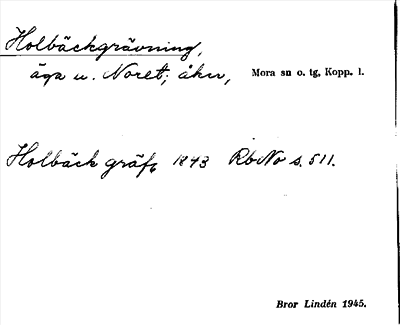 Holbäckgrävning,
äga u. Noret; åker, Mora sn o. tg, Kopp. l.
Holbäck gräfn 1843 RbNo s. 511.
Bror Lindén 1945.